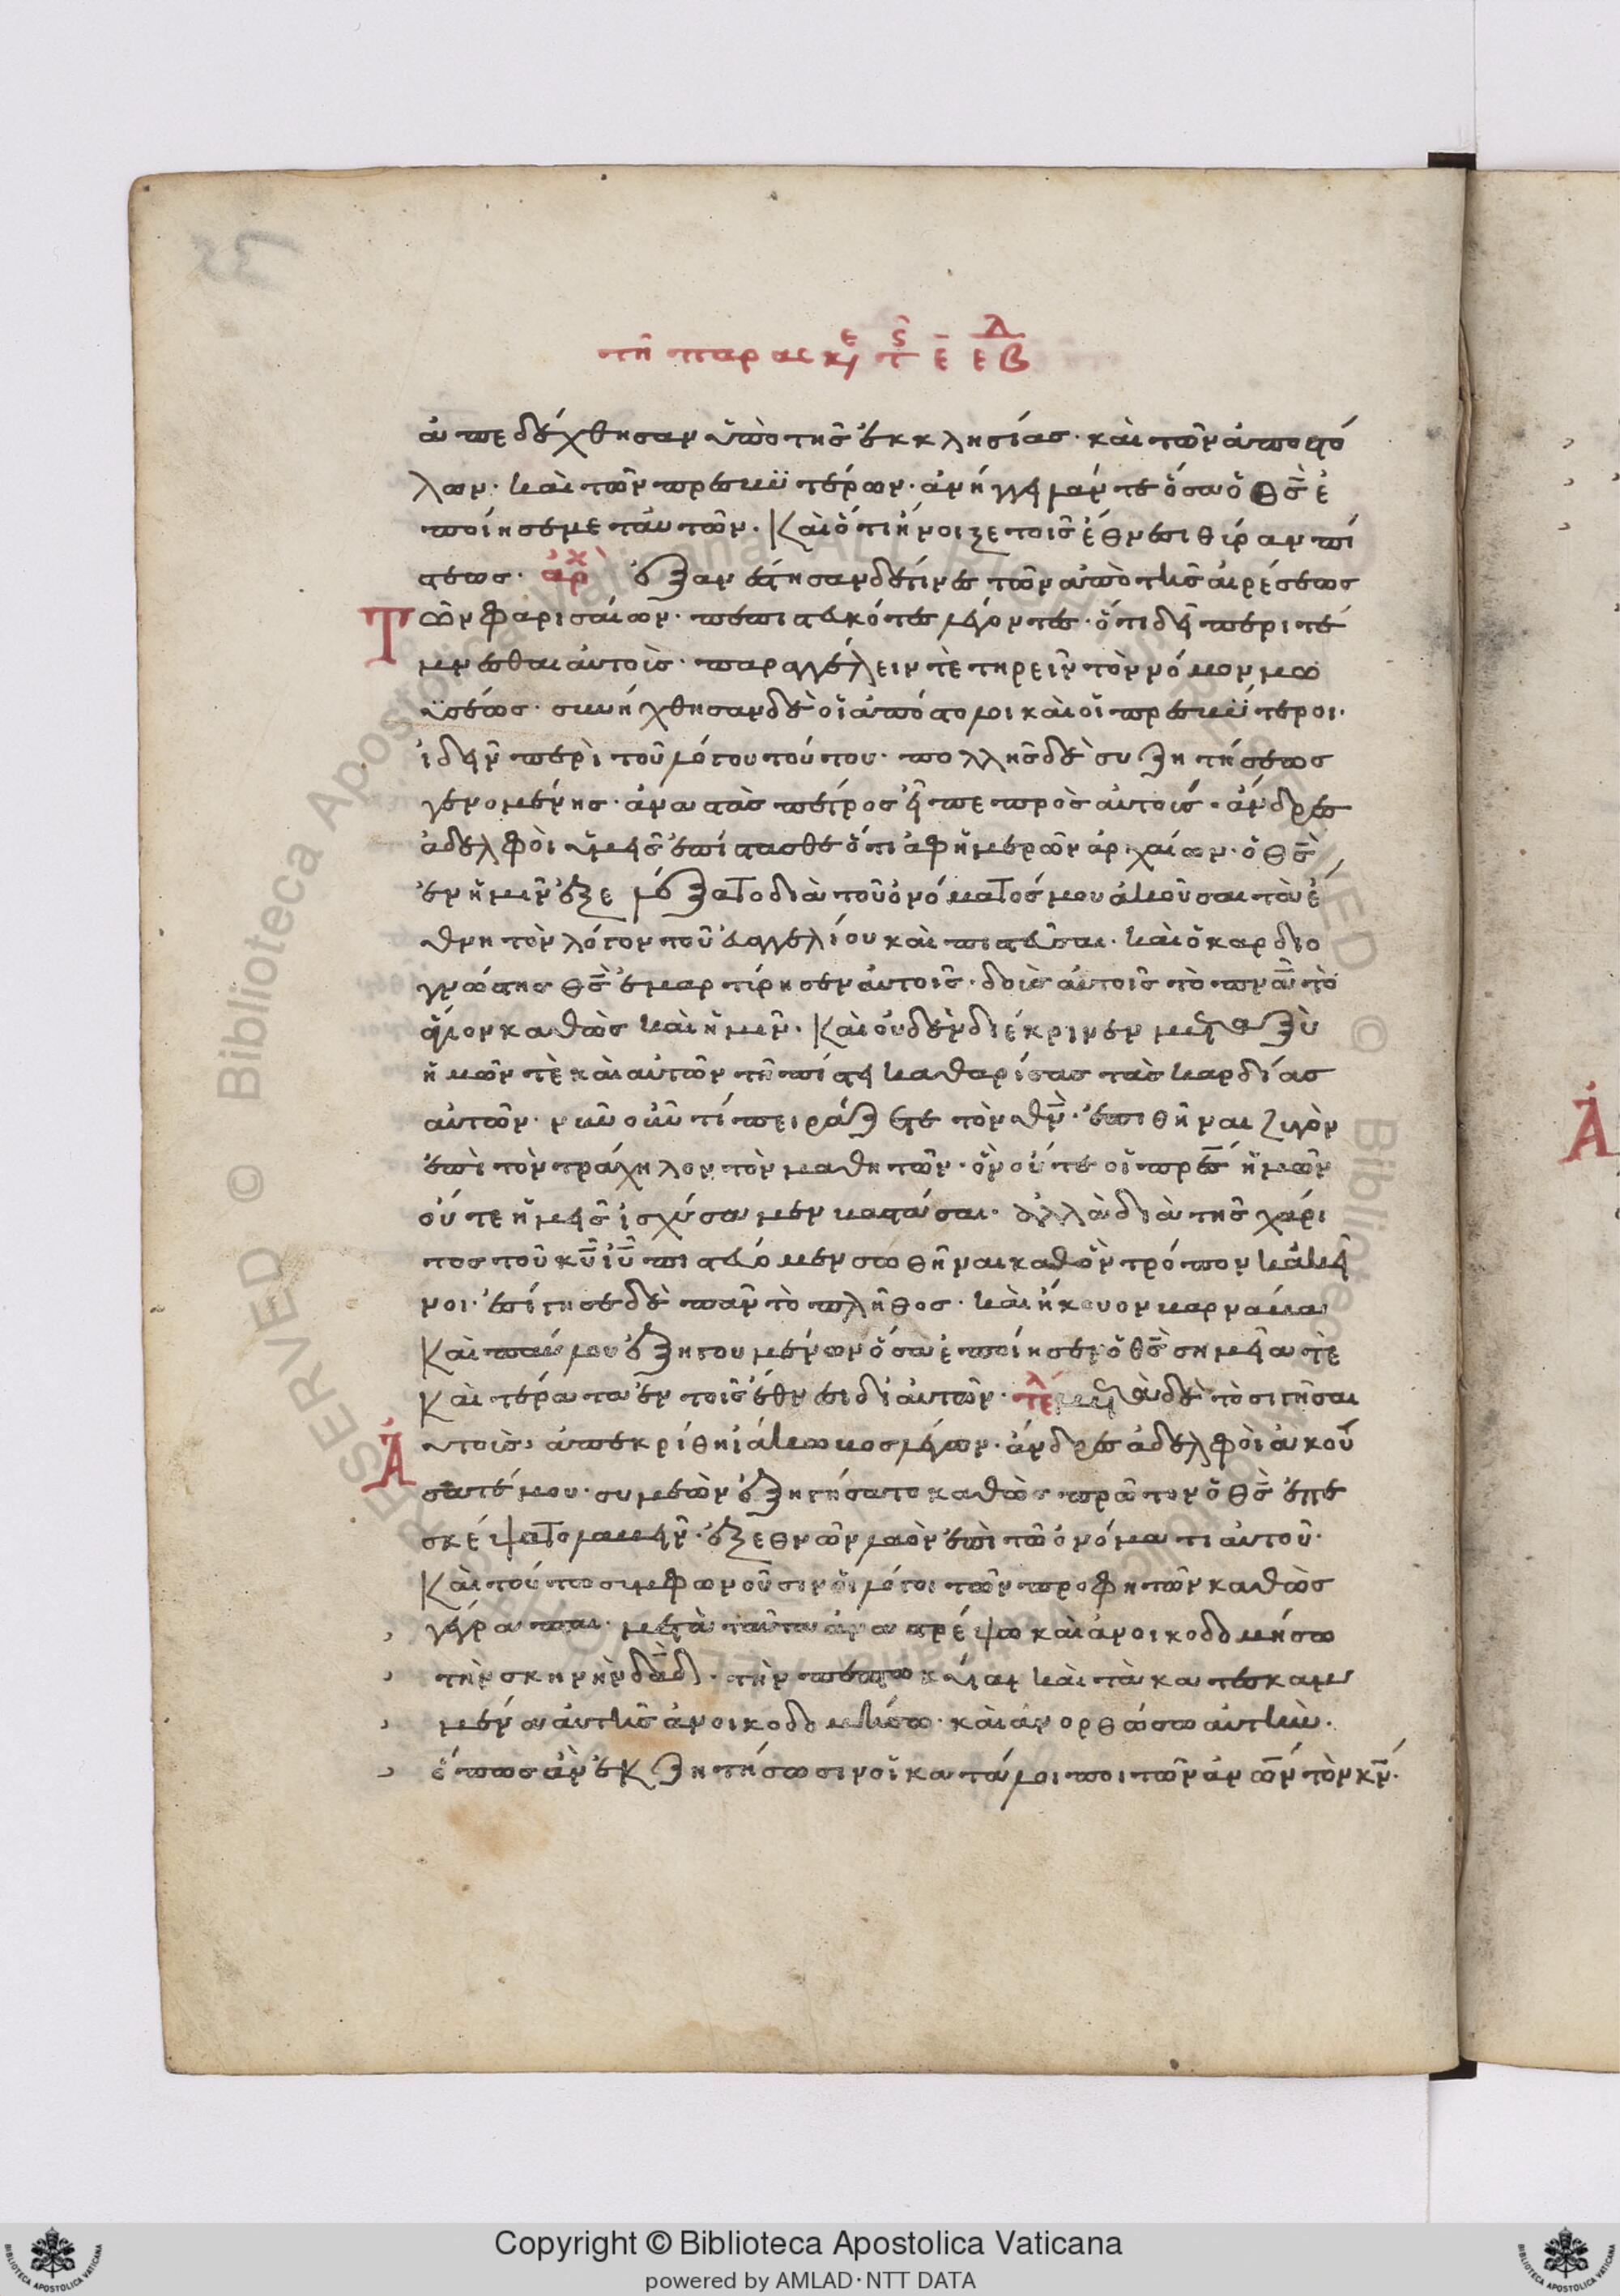 τῆ παρασκε ς τ ε Δ εβ
ἀπεδέχθησαν ὑπὸ τῆς ἐκκλησίας· καὶ τῶν ἀποστό
λων· καὶ τῶν πρεσβυτέρων· ἀνήγγειλάν τε ὅσα ὁ θς ἐ
ποίησε μετ αὐτῶν. Καὶ ὅτι ἤνοιξε τοῖς ἔθνεσι θύραν πί
στεως· ἀρχ ἐξανέστησαν δέ τινες τῶν ἀπὸ τῆς αἱρέσεως
Τῶν φαρισαίων· πεπιστευκότες λέγοντες· ὅτι δεῖ περιτέ
μνεσθαι αὐτοῖς· παραγγέλλειν τὲ τηρεῖν τὸν νόμον μω
ϋσέως· συνήχθησαν δὲ οἱ ἀπόστολοι καὶ οἱ πρεσβύτεροι·
ἰδεῖν περὶ τοῦ λόγου τούτου· πολλῆς δὲ συζητήσεως
γενομένης· ἀναστὰς πέτρος εἶπε πρὸς αὐτούς· ἄνδρες
ἀδελφοὶ ὑμεῖς ἐπίστασθε ὅτι ἀφ ἡμερῶν ἀρχαίων· ὁ θς
ἐν ἡμῖν ἐξελέξατο διὰ τοῦ ὀνόματός μου ἀκοῦσαι τὰ ἔ
θνη τὸν λόγον τοῦ εὐαγγελίου καὶ πιστεῦσαι· καὶ ὁ καρδιο
γνώστης θς ἐμαρτύρησεν αὐτοῖς· δοὺς αὐτοῖς τὸ πνα τὸ
ἅγιον καθὼς καὶ ἡμῖν· Καὶ οὐδὲν διέκρινεν μεταξὺ
ἡμῶν τὲ καὶ αὐτῶν τῆ πίστει καθαρίσας τὰς καρδίας
αὐτῶν· νῦν οὖν τί πειράζετε τὸν θν· ἐπιθῆναι ζυγὸν
ἐπὶ τὸν τράχηλον τὸν μαθητῶν· ὃν οὔτε οἱ πρες ἡμῶν
οὔτε ἡμεῖς ἰσχύσαμεν βαστάσαι· ἀλλὰ διὰ τῆς χάρι
τος τοῦ κυ ιυ πιστεύομεν σωθῆναι καθ ὃν τρόπον κἀκεῖ
νοι· ἐσίγησε δὲ πᾶν τὸ πλῆθος· καὶ ἤκουον βαρνάβα
Καὶ παύλου ἐξηγουμένων ὅσα ἐποίησεν ὁ θς σημεῖα τὲ
Καὶ τέρατα ἐν τοῖς ἔθνεσι δι αὐτῶν· τελ μετὰ δὲ τὸ σιγῆσαι
Αὐτοὺς, ἀπεκρίθη ἰάκωβος λέγων· ἄνδρες ἀδελφοὶ ἀκού
σατέ μου· συμεὼν ἐξηγήσατο καθὼς πρῶτον ὁ θς ἐπε
σκέψατο λαβεῖν· ἐξ ἐθνῶν λαὸν ἐπὶ τῶ ὀνόματι αὐτοῦ·
Καὶ τούτω συμφωνοῦσιν οἱ λόγοι τῶν προφητῶν καθὼς
γέγραπται· μετὰ ταῦτα ἀναστρέψω καὶ ἀνοικοδομήσω
τὴν σκηνὴν δαδ· τὴν πεπτωκυῖαν καὶ τὰ κατεσκαμ
μένα αὐτῆς ἀνοικοδομήσω· καὶ ἀνορθώσω αὐτήν·
ὅπως ἂν ἐκζητήσωσιν οἱ κατάλοιποι τῶν ἀνων τὸν κν·
Copyright © Biblioteca Apostolica Vaticana
powered by AMLAD·NTT DATA